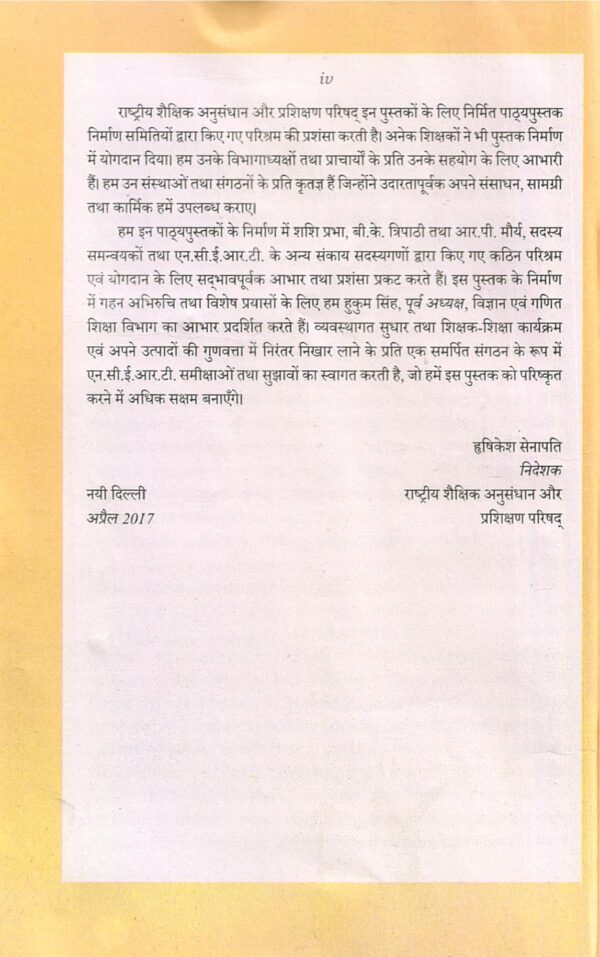 iv
राष्ट्रीय शैक्षिक अनुसंधान और प्रशिक्षण परिषद् इन पुस्तकों के लिए निर्मित पाठ्यपुस्तक
निर्माण समितियों द्वारा किए गए परिश्रम की प्रशंसा करती है। अनेक शिक्षकों ने भी पुस्तक निर्माण
में योगदान दिया। हम उनके विभागाध्यक्षों तथा प्राचार्यों के प्रति उनके सहयोग के लिए आभारी
हैं। हम उन संस्थाओं तथा संगठनों के प्रति कृतज्ञ हैं जिन्होंने उदारतापूर्वक अपने संसाधन, सामग्री
तथा कार्मिक हमें उपलब्ध कराए।
हम इन पाठ्यपुस्तकों के निर्माण में शशि प्रभा, बी.के. त्रिपाठी तथा आर.पी. मौर्य, सदस्य
समन्वयकों तथा एन.सी.ई.आर.टी. के अन्य संकाय सदस्यगणों द्वारा किए गए कठिन परिश्रम
एवं योगदान के लिए सद्भावपूर्वक आभार तथा प्रशंसा प्रकट करते हैं। इस पुस्तक के निर्माण
में गहन अभिरुचि तथा विशेष प्रयासों के लिए हम हुकुम सिंह, पूर्व अध्यक्ष, विज्ञान एवं गणित
शिक्षा विभाग का आभार प्रदर्शित करते हैं। व्यवस्थागत सुधार तथा शिक्षक-शिक्षा कार्यक्रम
एवं अपने उत्पादों की गुणवत्ता में निरंतर निखार लाने के प्रति एक समर्पित संगठन के रूप में
एन.सी.ई.आर.टी. समीक्षाओं तथा सुझावों का स्वागत करती है, जो हमें इस पुस्तक को परिष्कृत
करने में अधिक सक्षम बनाएँगे।
हृषिकेश सेनापति
निदेशक
नयी दिल्ली राष्ट्रीय शैक्षिक अनुसंधान और
अप्रैल 2017 प्रशिक्षण परिषद्